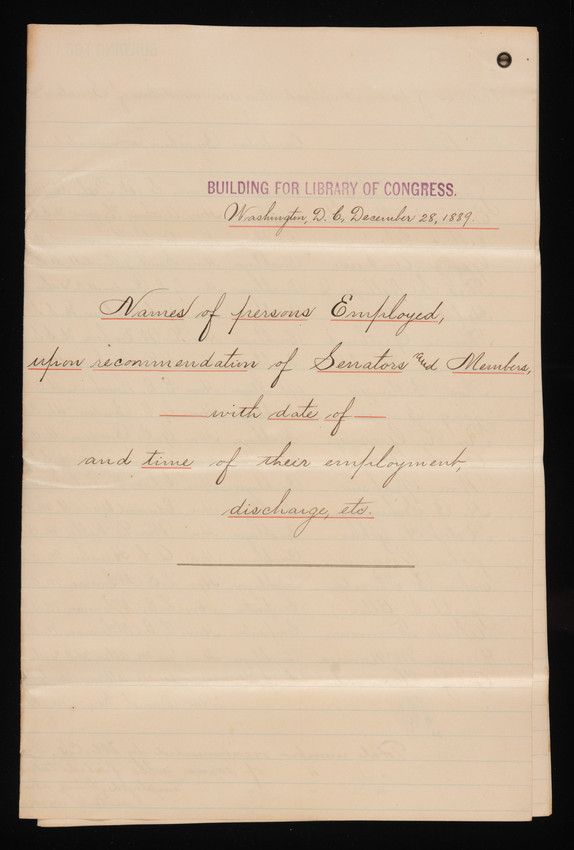 BUILDING FOR LIBRARY OF CONGRESS.
Washington, D. C., December 28, 1889.
Names of persons Employed,
upon recommendation of Senators and Members,
with date of
and time of their employment,
discharge, etc.